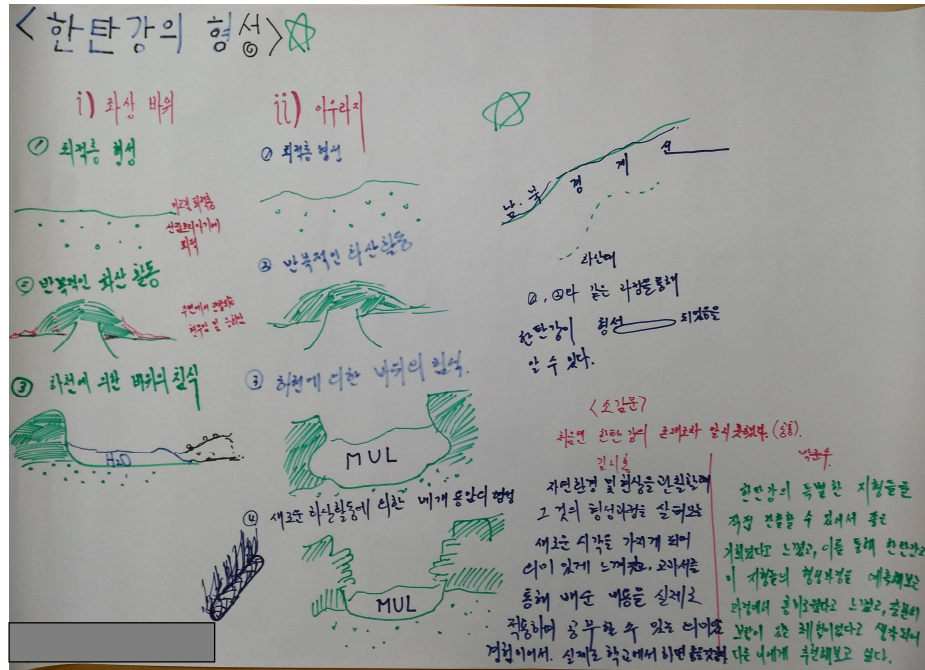 <한탄강의 형성>
i) 화산 바위
① 퇴적층 형성
퇴적
② 반복적인 화산 활동
③ 하천에 의한 바위의 침식
H2O
ii) 아우라지
① 퇴적층 형성
② 반복적인 화산활동
③ 하천에 의한 바위의 침식.
MUL
④ 새로운 화산활동에 의한 베개 용암의 형성
MUL
남·북 경계선
①, ②와 같은 과정을 통해
한탄강이 형성 되었음을
알 수 있다.
<소감문>
처음엔 한탄강의 존재조차 알지 못했었다. (공통).
자연환경 및 현상을 관찰하며
그것의 형성과정을 살펴보는
새로운 시각을 가지게 되어
의미 있게 느껴졌고, 교과서를
통해 배운 내용을 실제로
적용하며 공부할 수 있는
경험이어서. 실제로 학교에서 하면
한탄강의 특별한 지형들을
직접 관찰할 수 있어서 좋은
기회였다고 느꼈고, 이를 통해 한탄강
이 지형들의 형성과정을 예측해보는
과정에서 흥미로웠다고 느꼈고,
보람이 있는 체험이었다고 생각되어
다른 에게 추천해보고 싶다.